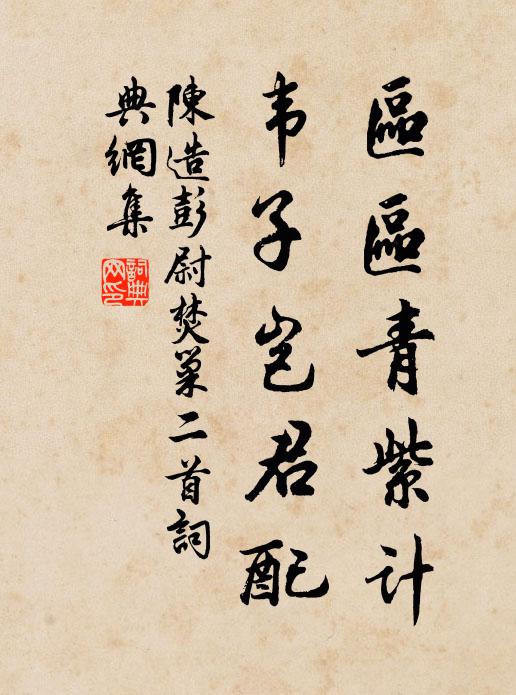 區區青紫計
韦子岂君配
陳造彭尉焚巢二首詞
典網集
詞典网印